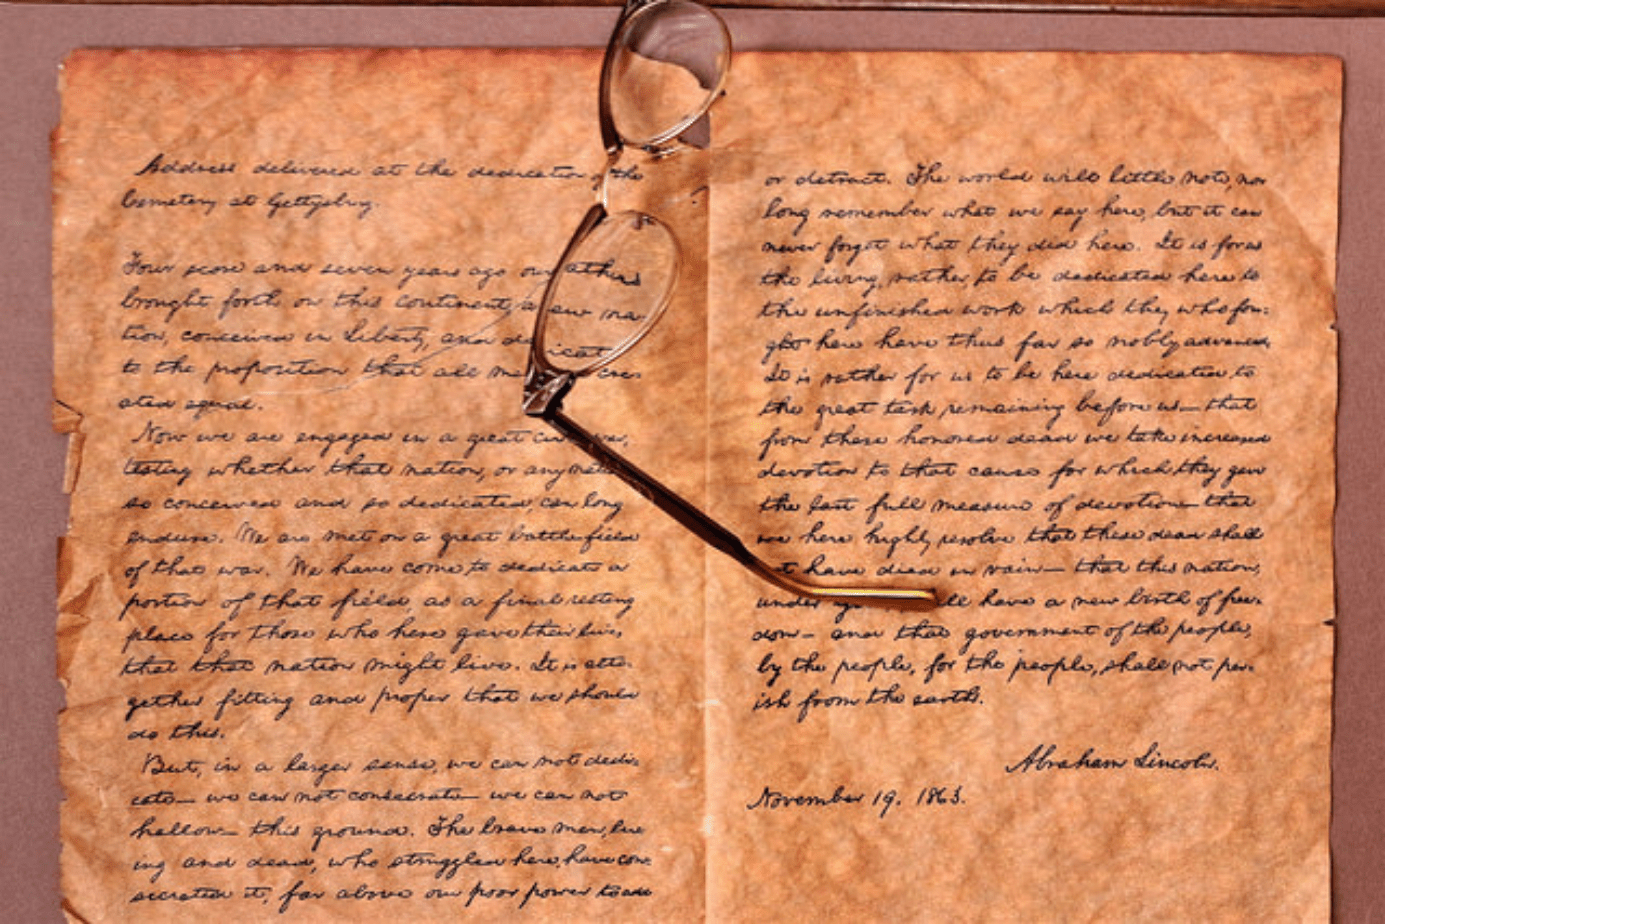 Address delivered at the dedication of the
Cemetery at Gettysburg.
Four score and seven years ago our fathers
brought forth on this continent, a new na-
tion, conceived in Liberty, and dedicat
to the proposition that all me cre-
ated equal.
Now we are engaged in a great civ war,
testing whether that nation, or any nati
so conceived and so dedicated, can long
endure. We are met on a great battle-field
of that war. We have come to dedicate a
portion of that field, as a final resting
place for those who here gave their lives
that that nation might live. It is alto-
gether fitting and proper that we should
do this.
But, in a larger sense, we can not dedi-
cate— we can not consecrate— we can not
hallow— this ground. The brave men, liv-
ing and dead, who struggled here, have con-
secrated it, far above our poor power to add
or detract. The world will little note, nor
long remember what we say here, but it can
never forget what they did here. It is for us
the living, rather, to be dedicated here to
the unfinished work which they who fou-
ght here have thus far so nobly advanced.
It is rather for us to be here dedicated to
the great task remaining before us— that
from these honored dead we take increased
devotion to that cause for which they gave
the last full measure of devotion— that
we here highly resolve that these dead shall
t have died in vain— that this nation,
under ll have a new birth of free-
dom— and that government of the people,
by the people, for the people, shall not per-
ish from the earth.
Abraham Lincoln.
November 19, 1863.